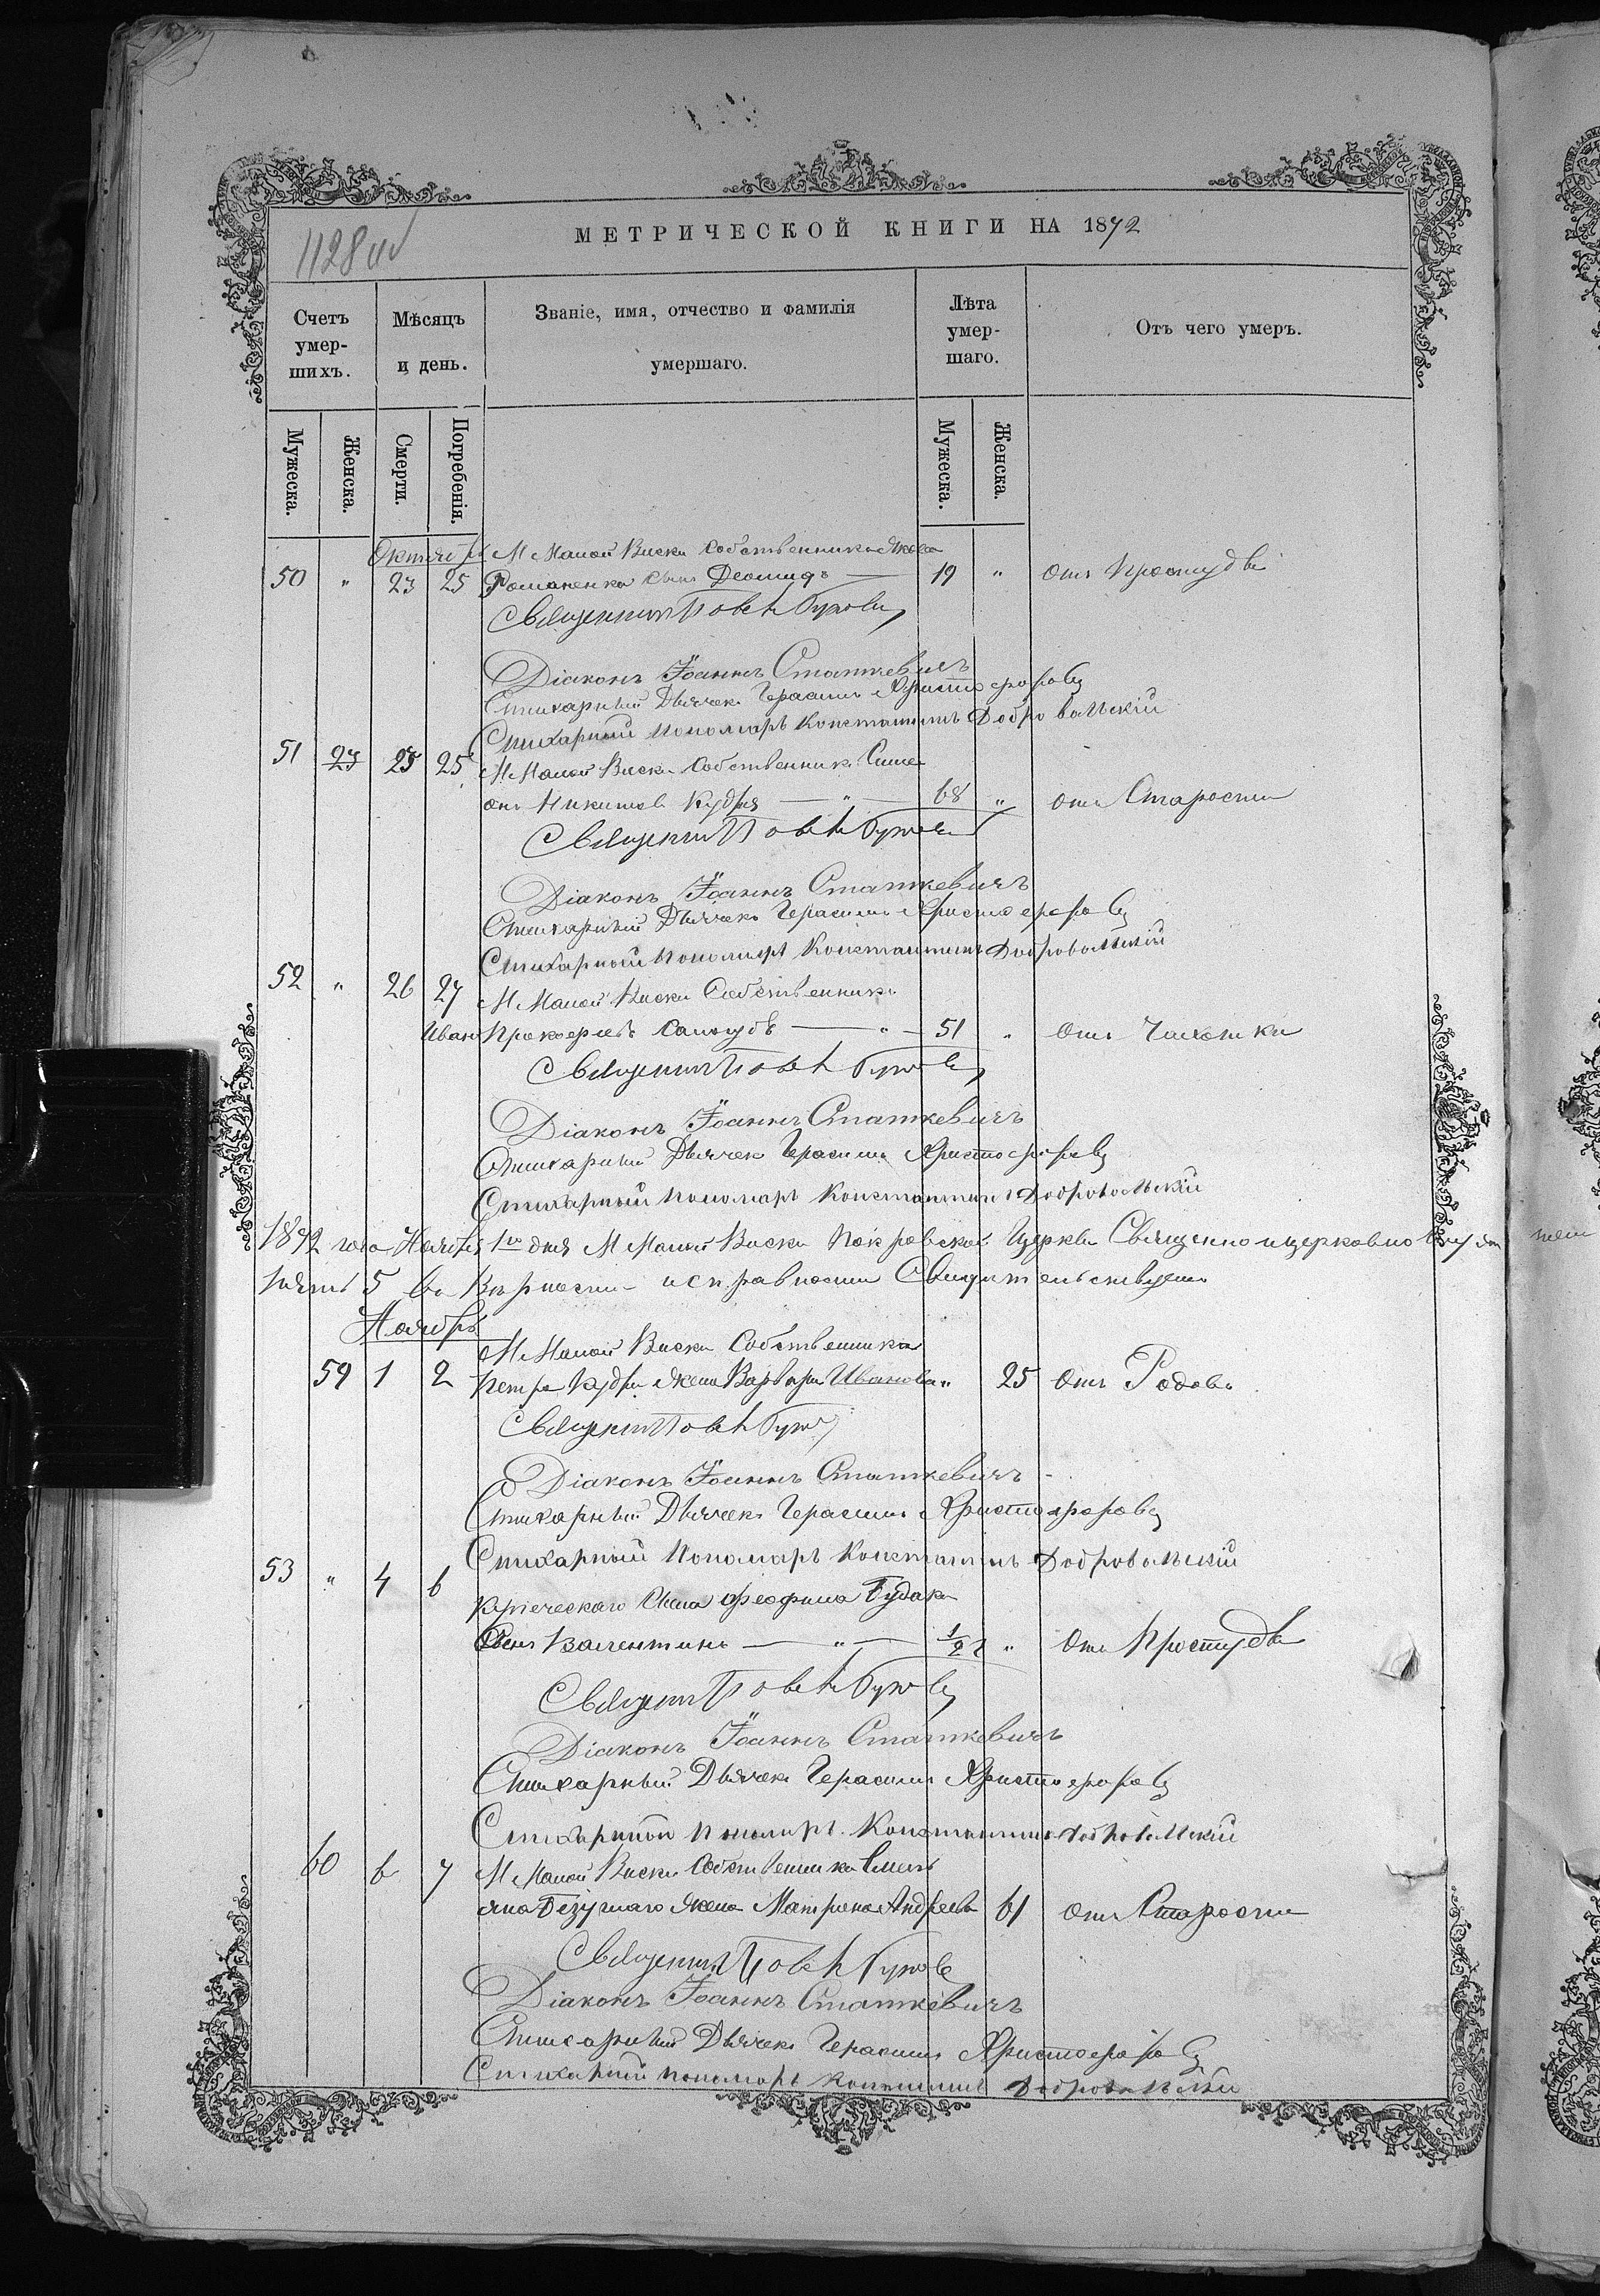 МЕТРИЧЕСКОЙ КНИГИ НА 1872
1128
Счетъ умер-шихъ.
Мѣсяцъ и день.
Званіе, имя, отчество и фамилія умершаго.
Лѣта умер-шаго.
Отъ чего умеръ.
Мужеска. Женска. Смерти. Погребенія. Мужеска. Женска.
Октябрь М Малой Виски Собственника Якова
50 " 23 25 Романенка сынъ Деомидъ — 19 " Отъ Простуды
Священникъ
Діаконъ Іоаннъ Статкевичъ
Стихарный Дьячекъ Герасимъ Христофоровъ
Стихарный Пономарь Константинъ Добровольскій
51 23 23 25 М Малой Виски Собственникъ Симе
онъ Никитовъ Кудря — " — 68 " Отъ Старости
Священникъ
Діаконъ Іоаннъ Статкевичъ
Стихарный Дьячекъ Герасимъ Христофоровъ
Стихарный Пономарь Константинъ Добровольскій
52 " 26 27 М Малой Виски Собственникъ
Иванъ Прокофіевъ — " — 51 " Отъ Чахотки
Священникъ
Діаконъ Іоаннъ Статкевичъ
Стихарный Дьячекъ Герасимъ Христофоровъ
Стихарный Пономарь Константинъ Добровольскій
1872 года Ноября 1го дня М Малой Виски Покровской Церкви Священно и церковно
5 въ Верности и исправности Свидетельствуемъ
Ноябрь
М Малой Виски Собственника
59 1 2 Петра Кудри жена Варвара Иванова " 25 Отъ Родовъ
Священникъ
Діаконъ Іоаннъ Статкевичъ
Стихарный Дьячекъ Герасимъ Христофоровъ
Стихарный Пономарь Константинъ Добровольскій
53 " 4 6
Феофила Будака
Сынъ Валентинъ — " — 1/2 г " Отъ Простуды
Священникъ
Діаконъ Іоаннъ Статкевичъ
Стихарный Дьячекъ Герасимъ Христофоровъ
Стихарный Пономарь Константинъ Добровольскій
60 6 7 М Малой Виски Собственника Емель
яна Безуглаго жена Матрена Андреева 61 Отъ Старости
Священникъ
Діаконъ Іоаннъ Статкевичъ
Стихарный Дьячекъ Герасимъ Христофоровъ
Стихарный Пономарь Константинъ Добровольскій